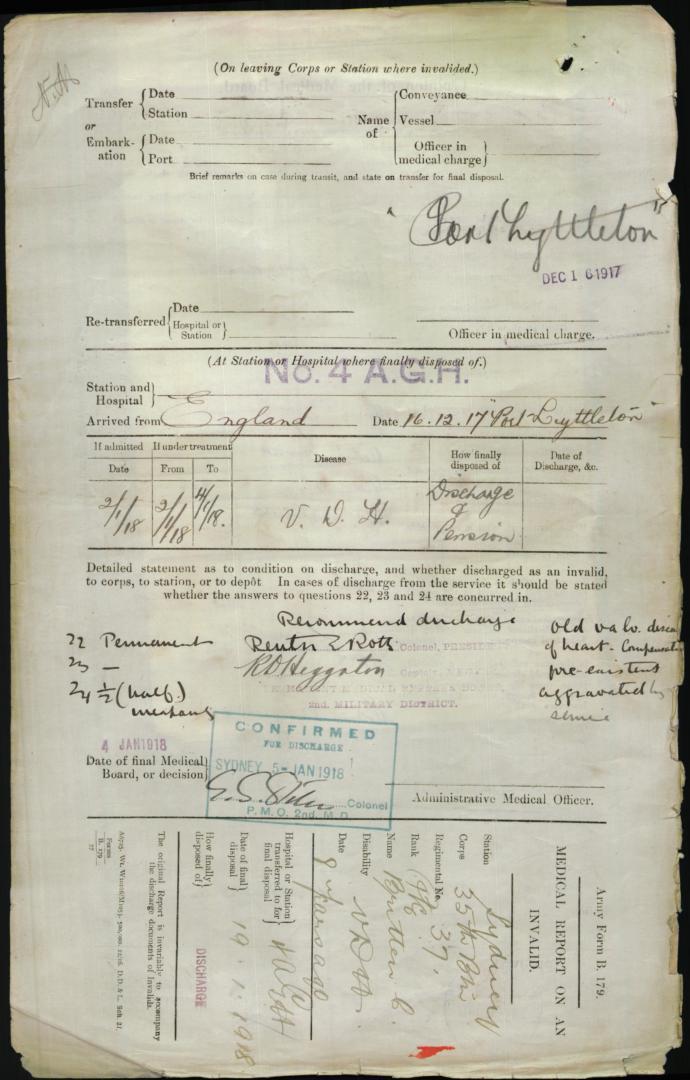 (On leaving Corps or Station where invalided.)
Transfer { Date
Station
or
Embark-ation { Date
Port
Name of { Conveyance
Vessel
Officer in medical charge }
Brief remarks on case during transit, and state on transfer for final disposal.
"Port Lyttleton"
DEC 16 1917
Re-transferred { Date
Hospital or Station }
Officer in medical charge.
(At Station or Hospital where finally disposed of.)
No. 4 A.G.H.
Station and Hospital }
Arrived from England Date 16.12.17 "Port Lyttleton"
If admitted If under treatment Disease How finally disposed of Date of Discharge, &c.
Date From To
2/1/18 2/1/18 4/1/18. V. D. H. Discharge & Pension
Detailed statement as to condition on discharge, and whether discharged as an invalid,
to corps, to station, or to depôt In cases of discharge from the service it should be stated
whether the answers to questions 22, 23 and 24 are concurred in.
Recommend discharge
22 Permanent
23 —
24 ½ (half)
Colonel, PRESIDENT
Captain
2nd. MILITARY DISTRICT.
old valv. disease
of heart. Compensation
pre-existent
aggravated by
service
4 JAN 1918
Date of final Medical Board, or decision }
CONFIRMED
FOR DISCHARGE
SYDNEY 5-JAN 1918
Colonel
P.M.O. 2nd. M.D.
Administrative Medical Officer.
Army Form B. 179.
MEDICAL REPORT ON AN
INVALID.
Station Sydney
Corps 35th Btn
Regimental No. 37.
Rank Pte
Name Britten C.
Disability V.D.H.
Date 8 years ago
Hospital or Station transferred to for final disposal } 4 AGH
Date of final disposal } 19. 1. 1918
How finally disposed of } DISCHARGE
The original Report is invariably to accompany
the discharge documents of Invalids.
D. D. & L. Sch. 27.
Forms
B. 179
27